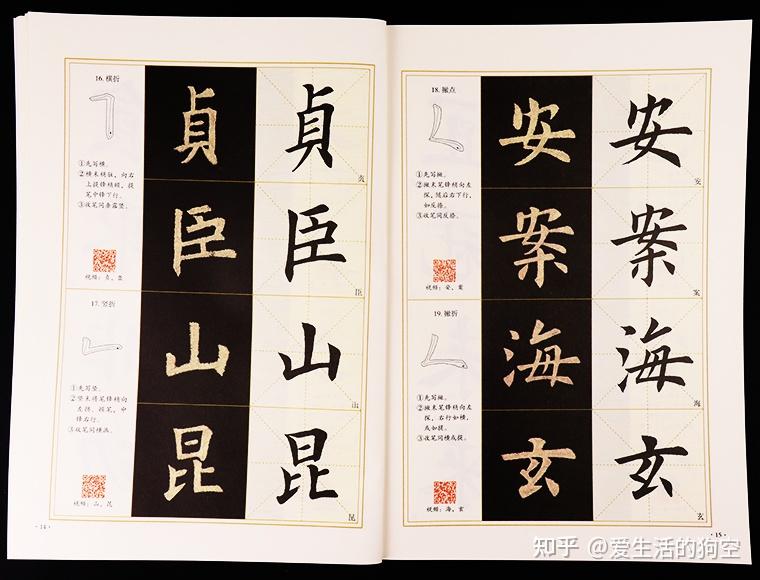 16. 横折
①先写横。
②横末稍驻，向右
上提锋稍顿，提
笔中锋下行。
③收笔同垂露竖。
视频：贞、臣
貞
貞
臣
臣
臣
17. 竖折
①先写竖。
②竖末将笔锋稍向
左挫，顿笔，中
锋右行。
③收笔同横画。
视频：山、昆
山
山
山
昆
昆
昆
·14·
18. 撇点
①先写撇。
②撇末笔锋稍向左
探，随后右下行，
如反捺。
③收笔同反捺。
视频：安、案
安
安
安
案
案
案
19. 撇折
①先写撇。
②撇末笔锋稍向左
探，右行如横，
或如提。
③收笔同横或提。
视频：海、玄
海
海
海
玄
玄
玄
·15·
知乎 @爱生活的狗空